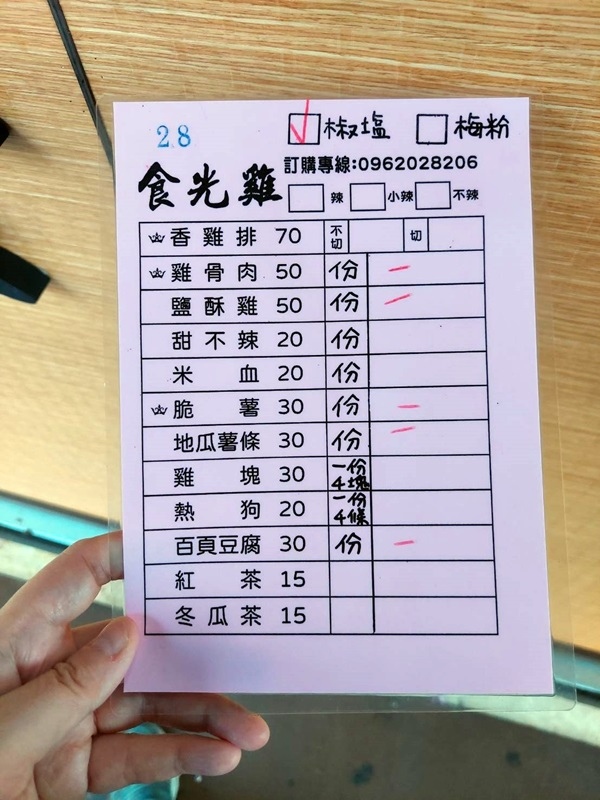 28
椒塩 梅粉
訂購專線:0962028206
食光雞
辣 小辣 不辣
香雞排 70 不切 切
雞骨肉 50 份
鹽酥雞 50 份
甜不辣 20 份
米血 20 份
脆薯 30 份
地瓜薯條 30 份
雞塊 30 一份4塊
熱狗 20 一份4條
百頁豆腐 30 份
紅茶 15
冬瓜茶 15